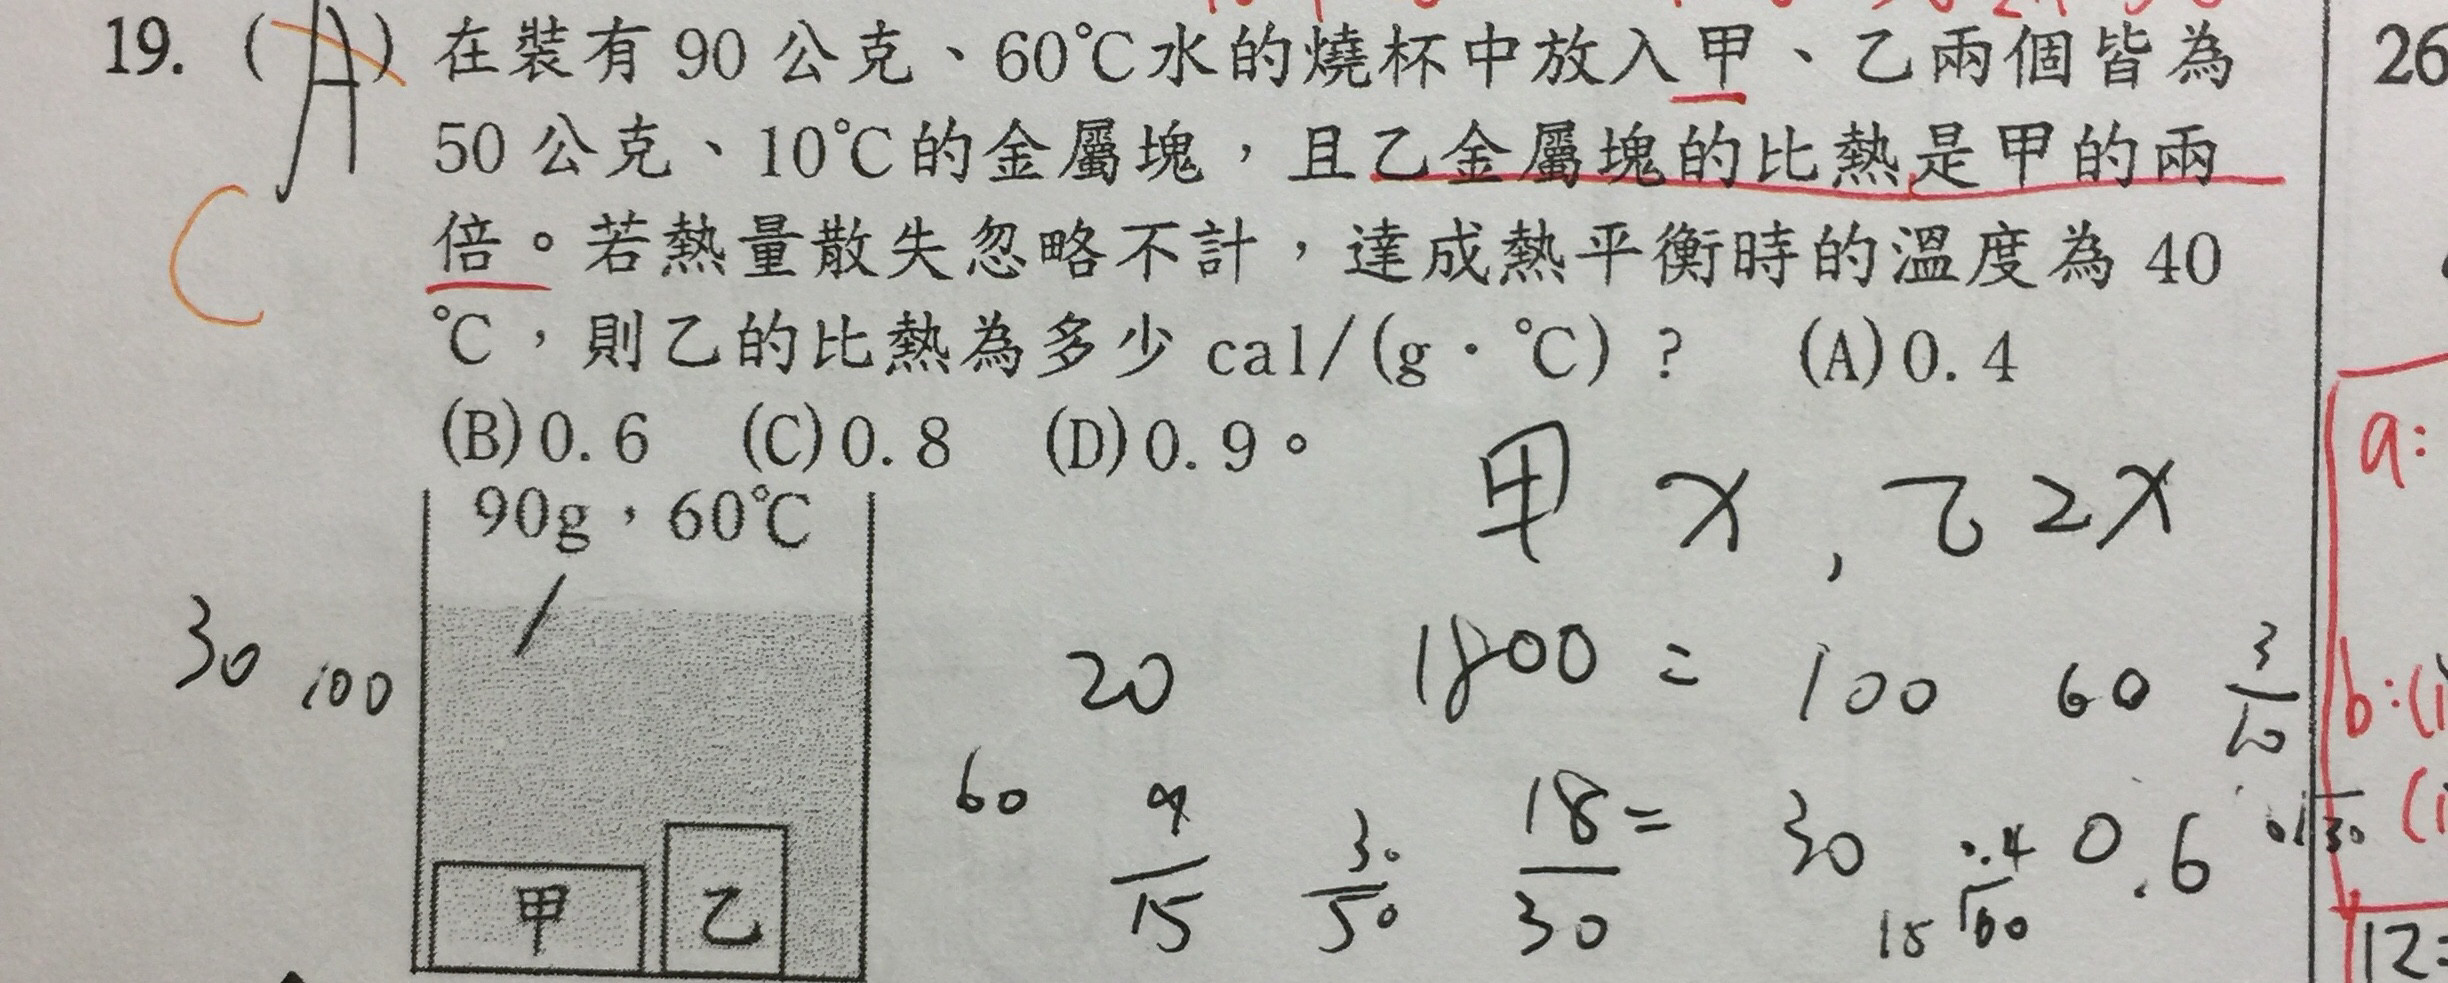 19. (A) 在裝有 90 公克、60℃水的燒杯中放入甲、乙兩個皆為
50 公克、10℃的金屬塊，且乙金屬塊的比熱是甲的兩
倍。若熱量散失忽略不計，達成熱平衡時的溫度為 40
℃，則乙的比熱為多少 cal/(g．℃)？ (A)0.4
(B)0.6 (C)0.8 (D)0.9。
C
26
a:
90g，60℃
甲 x , 乙 2x
30 100
20
1800 = 100 60 3/10
b:(i
60
30/50
18/30 =
30
0.6
15
甲 乙
12=